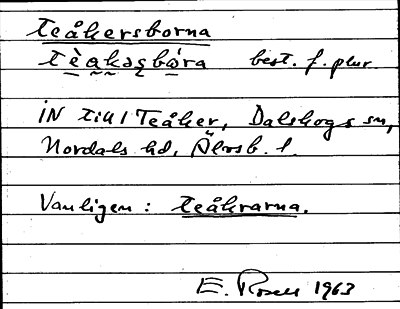 teåkersborna
tè̠a̰k̰əʂbo̠ra best. f. plur.
IN till Teåker, Dalskogs sn,
Nordals hd, Älvsb. l.
Vanligen: teåkrarna.
E. Rosell 1963